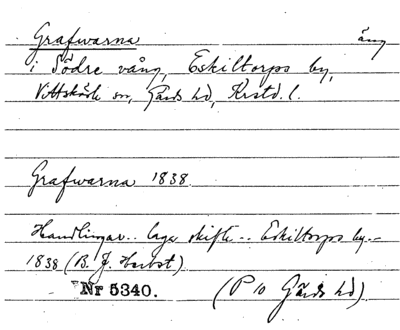 Grafwarna äng
i Södre vång, Eskiltorps by,
Vittskövle sn, Gärds hd, Krstd. l.
Grafwarna 1838.
Handlingar.. laga skifte.. Eskiltorps by..
1838 (B. J. Herbst)
Nr 5340. (P 10 Gärds hd)